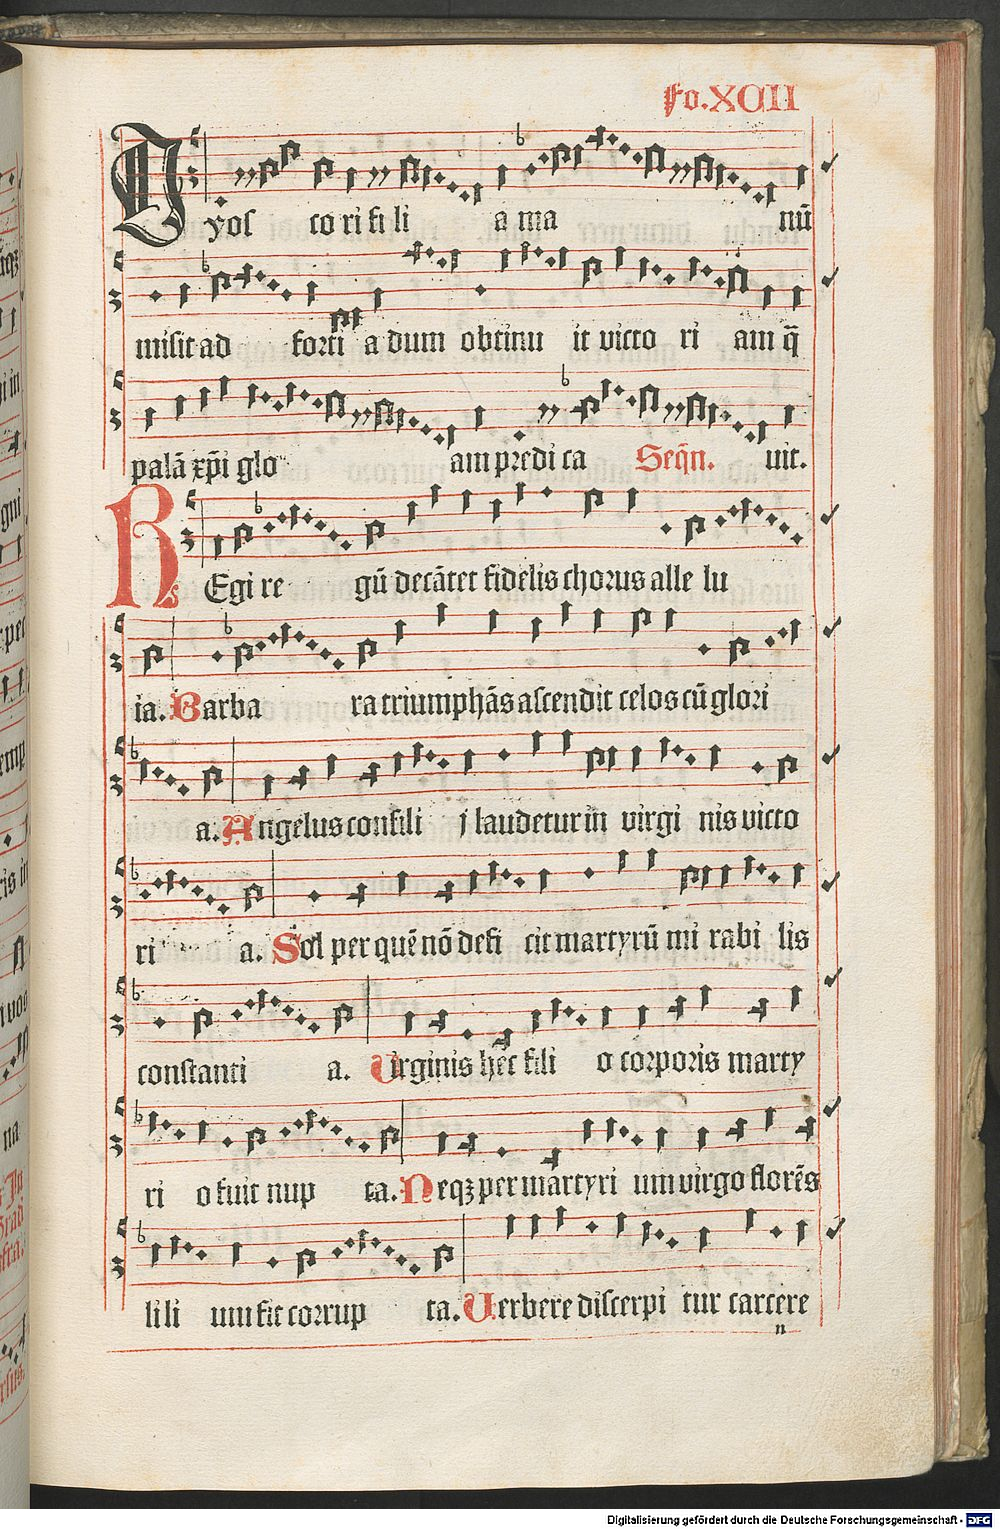 Fo.XCII
Dyos co ri fi li a ma nū
misit ad forti a dum obtinu it victo ri am q̄
palā xp̄i glo am predi ca Seqn̄. uit.
REgi re gū decātet fidelis chorus alle lu
ia. Barba ra triumphās ascendit celos cū glori
a. Angelus consili j laudetur in virgi nis victo
ri a. Sol per quē nō defi cit martyrū mi rabi lis
constanti a. Uirginis hec fili o corporis marty
ri o fuit nup ta. Neqʒ per martyri um virgo florēs
lili um fit corrup ta. Uerbere discerpi tur carcere
n
Digitalisierung gefördert durch die Deutsche Forschungsgemeinschaft - DFG